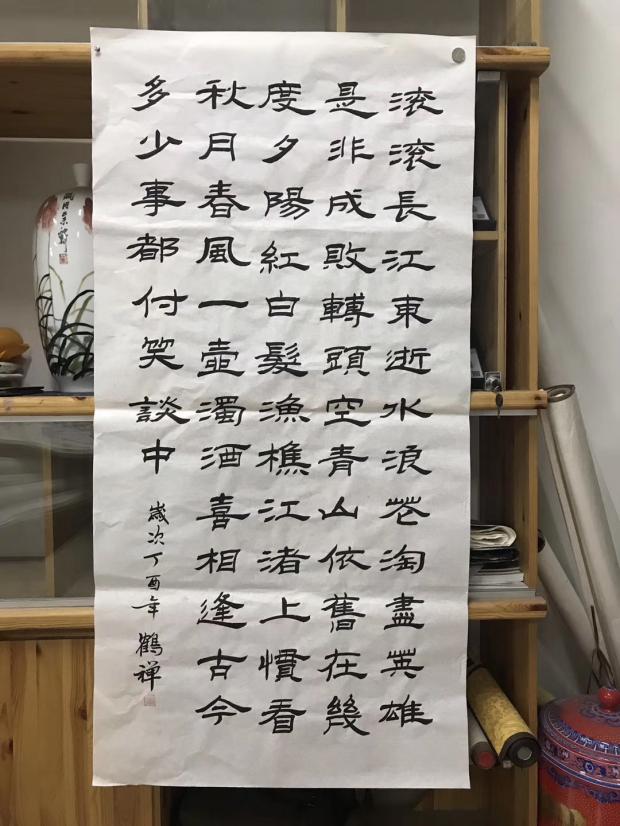 滚滚長江東逝水浪花淘盡英雄
是非成敗轉頭空青山依舊在幾
度夕陽紅白髮漁樵江渚上慣看
秋月春風一壺濁酒喜相逢古今
多少事都付笑談中
歲次丁酉年鶴禅